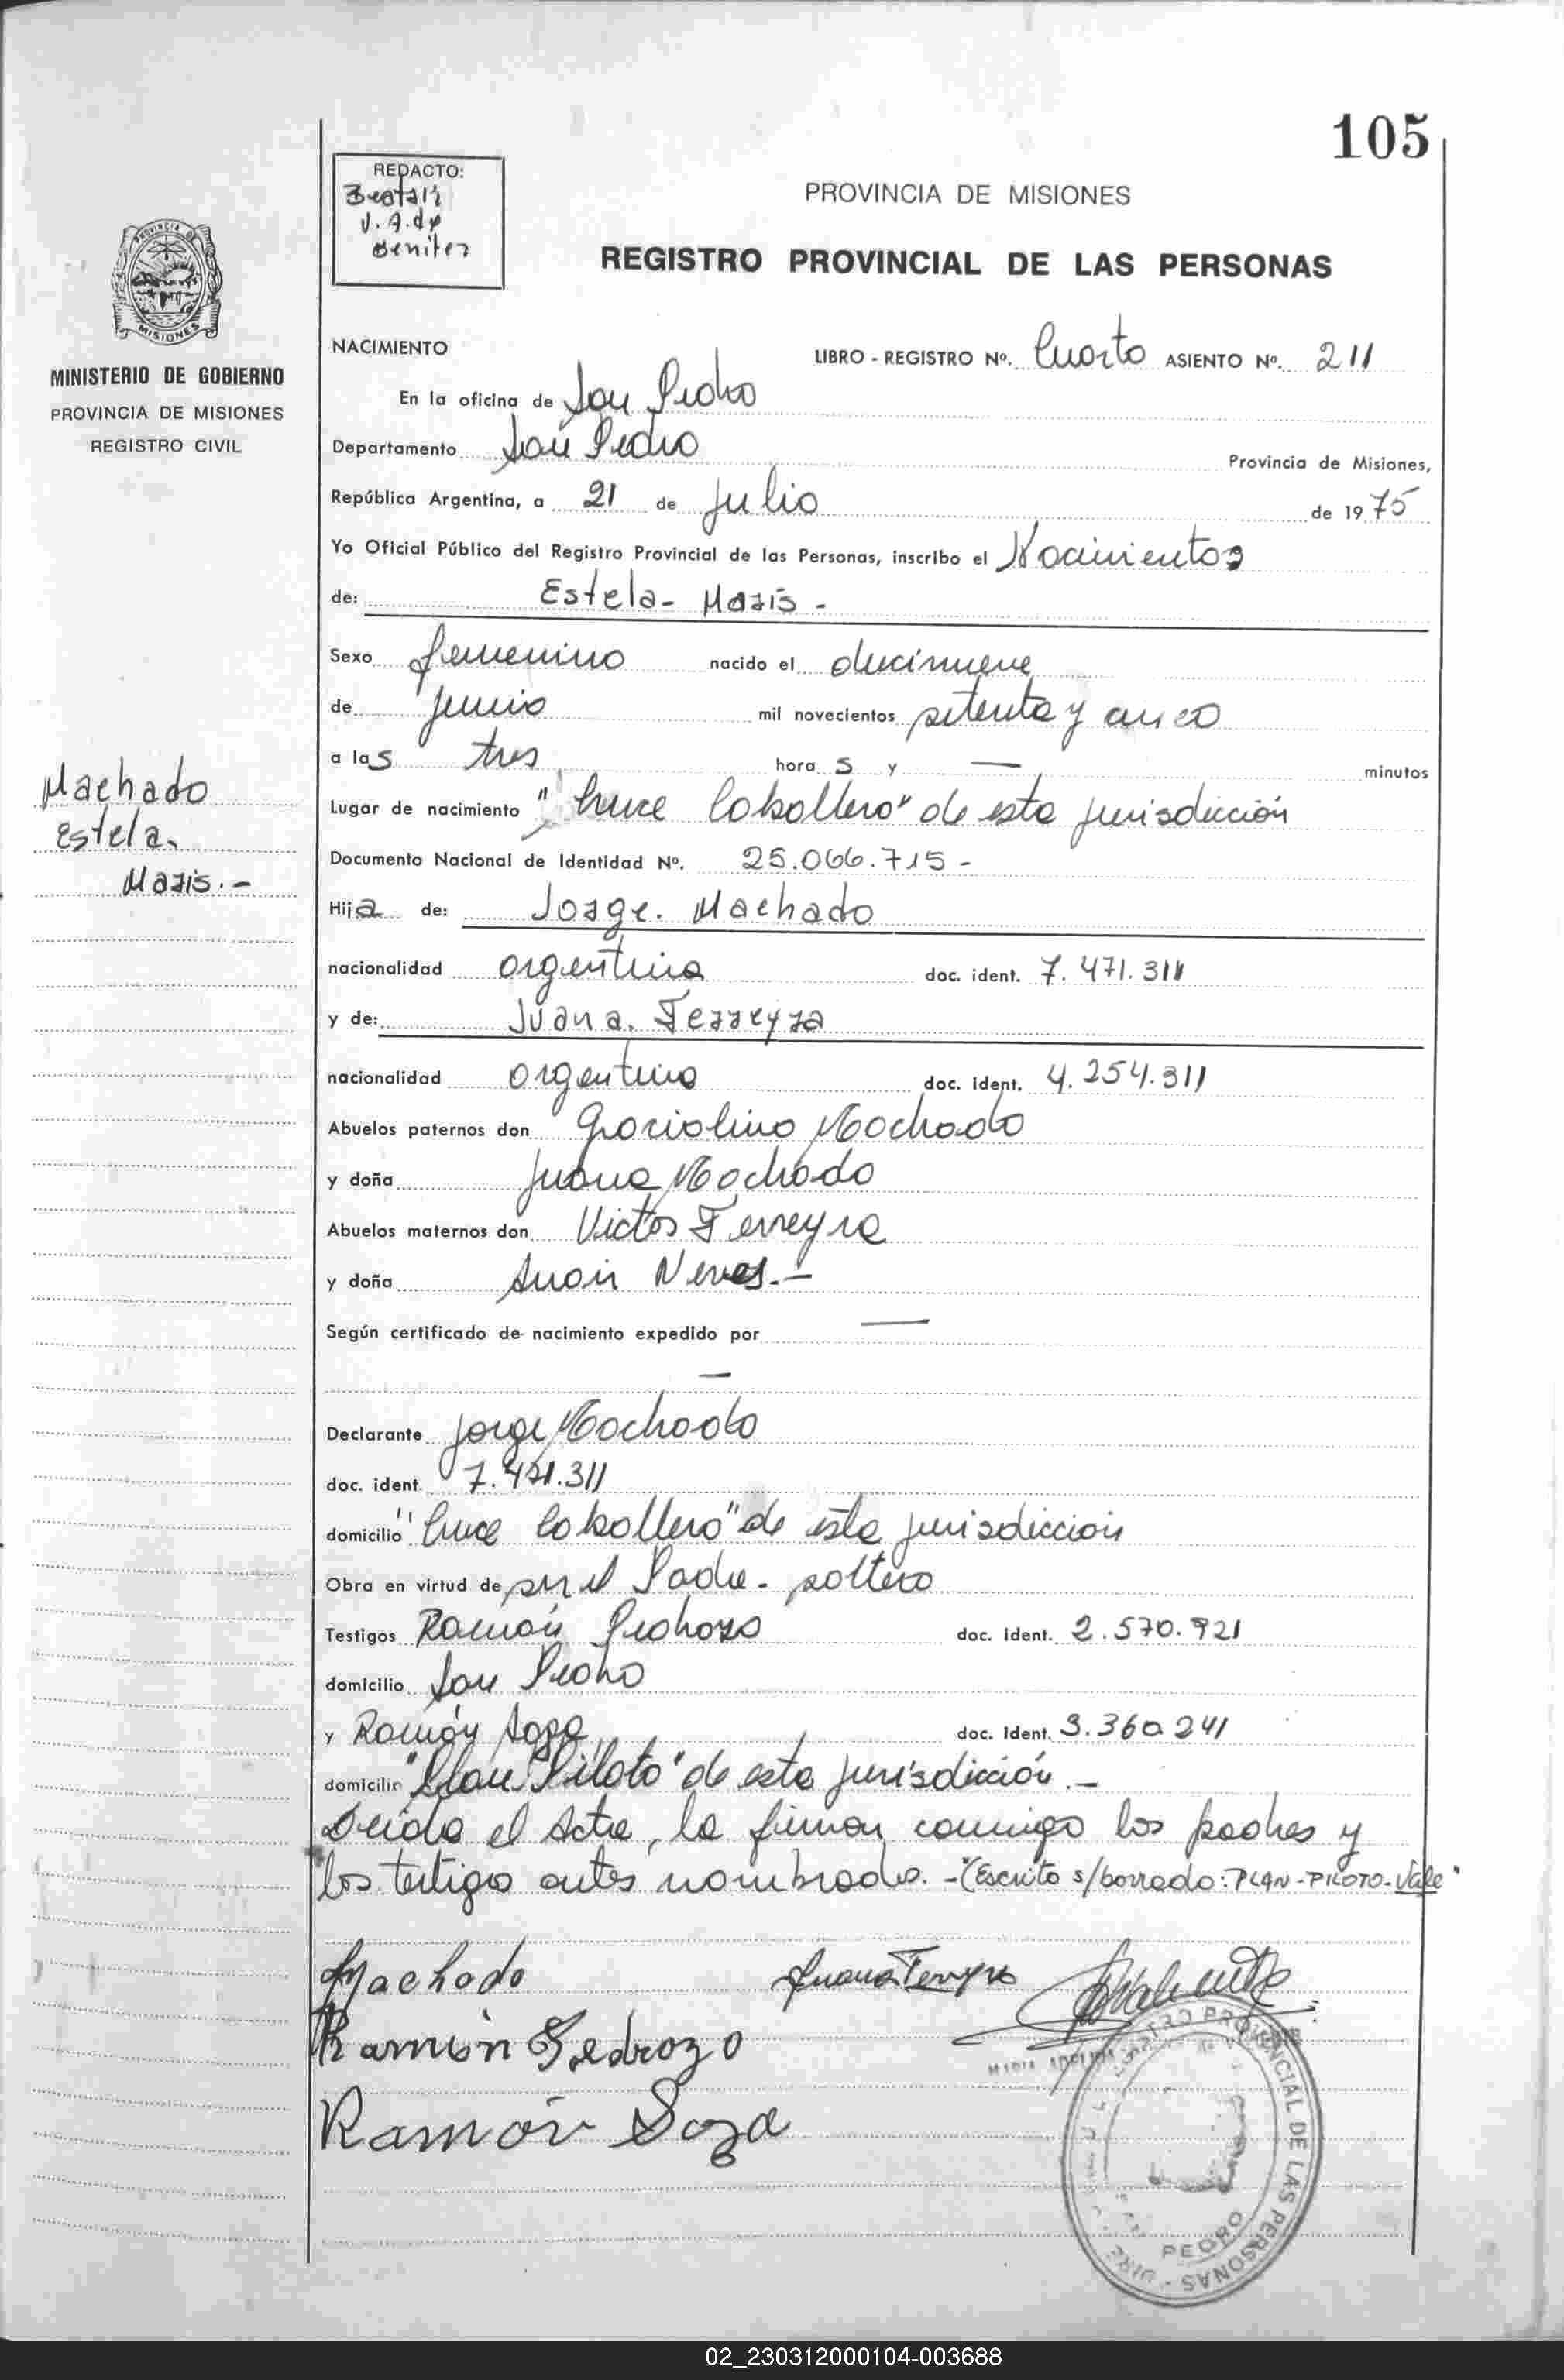 105
REDACTO:
Beatriz
V. A. de
Benitez
PROVINCIA DE MISIONES
REGISTRO PROVINCIAL DE LAS PERSONAS
PROVINCIA DE
MISIONES
MINISTERIO DE GOBIERNO
PROVINCIA DE MISIONES
REGISTRO CIVIL
NACIMIENTO LIBRO - REGISTRO Nº. Cuarto ASIENTO Nº. 211
En la oficina de San Pedro
Departamento San Pedro Provincia de Misiones,
República Argentina, a 21 de Julio de 1975
Yo Oficial Público del Registro Provincial de las Personas, inscribo el Nacimiento
de: Estela- Maris -
Sexo femenino nacido el diecinueve
de junio mil novecientos setenta y cinco
a las tres horas y — minutos
Lugar de nacimiento "Cruce Caballero" de esta jurisdicción
Documento Nacional de Identidad Nº. 25.066.715 -
Hija de: Jorge. Machado
nacionalidad argentina doc. ident. 7.471.311
y de: Juana. Ferreyra
nacionalidad argentina doc. ident. 4.254.311
Abuelos paternos don Graciolino Machado
y doña Juana Machado
Abuelos maternos don Victor Ferreyra
y doña Neves.-
Según certificado de nacimiento expedido por —
—
Declarante Jorge Machado
doc. ident. 7.471.311
domicilio "Cruce Caballero" de esta jurisdicción
Obra en virtud de ser el Padre- soltero
Testigos Ramón Pedrozo doc. ident. 2.570.921
domicilio San Pedro
y Ramón Sosa doc. Ident. 3.360.241
domicilio "Plan Piloto" de esta jurisdicción.-
Leída el Acta, la firman conmigo los padres y
los testigo antes nombrado. -"(Escrito s/borrado: PLAN-PILOTO-Vale"
Machado
Estela.
Maris.-
Machado Juana Ferreyra
Ramón Pedrozo
Ramón Soza
REGISTRO PROVINCIAL DE LAS PERSONAS
PEDRO
02_230312000104-003688